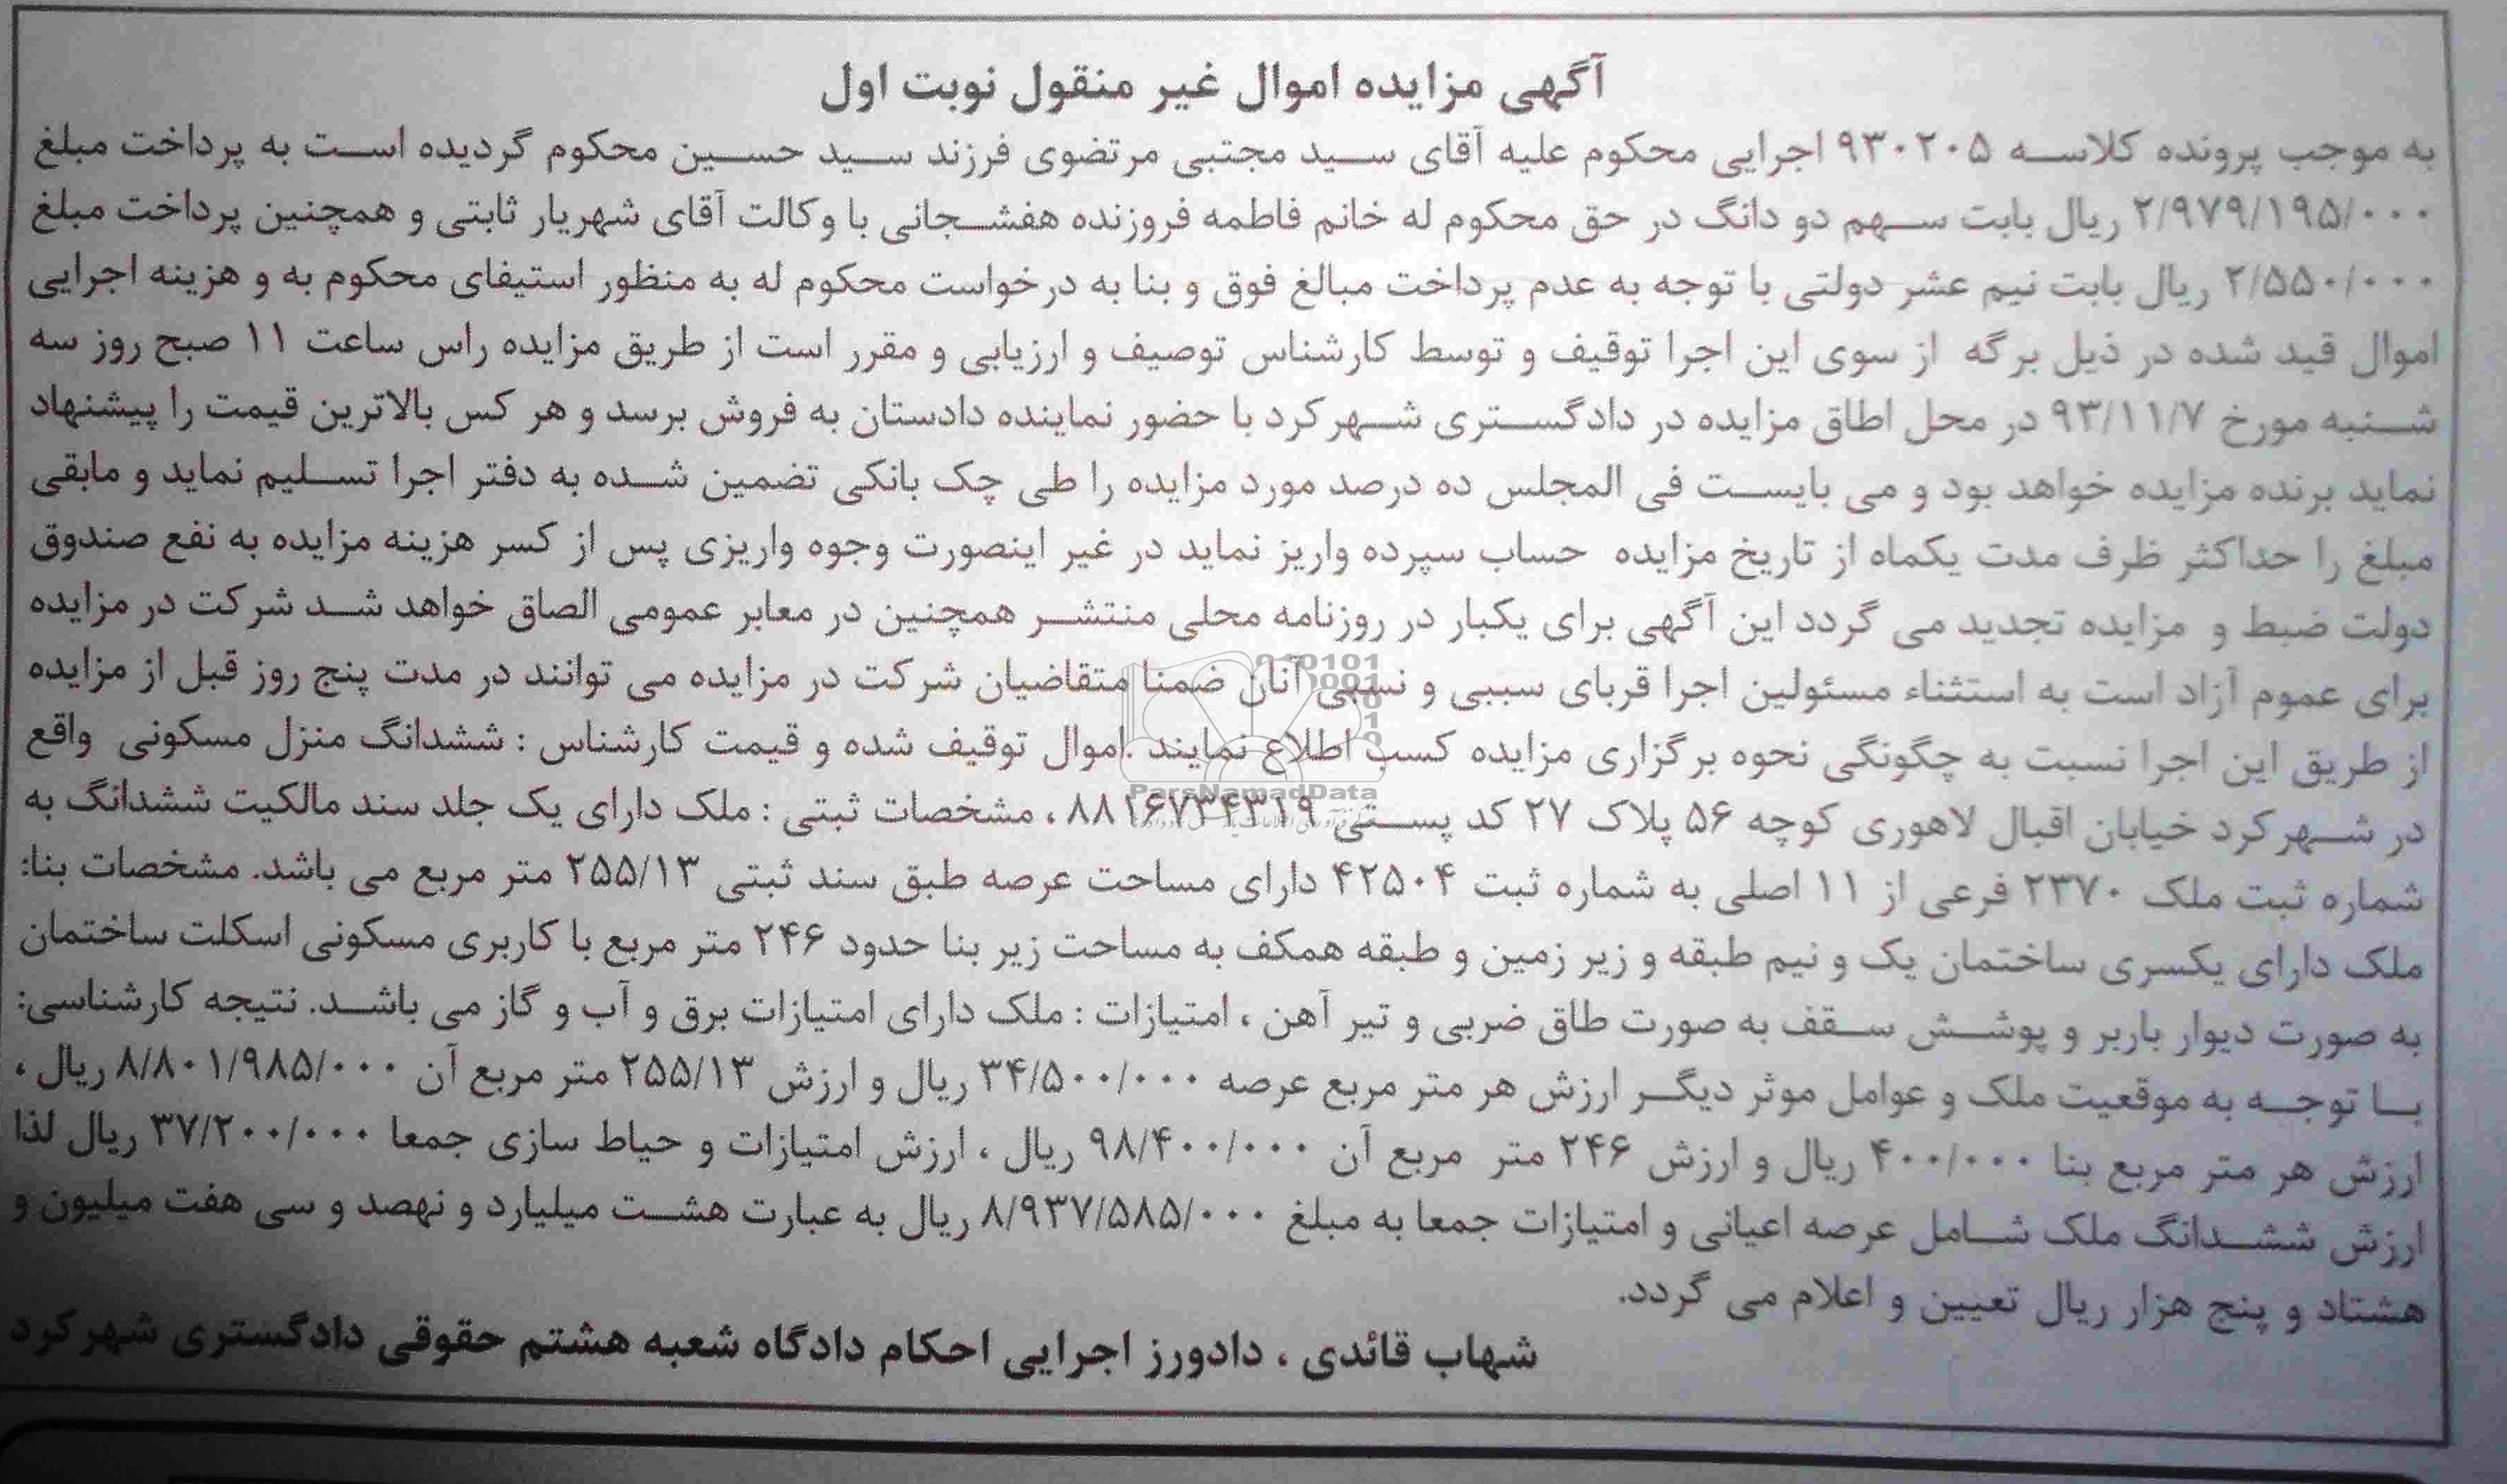 آگهی مزایده اموال غیر منقول نوبت اول
به موجب پرونده کلاسه ۹۳۰۲۰۵ اجرایی محکوم علیه آقای سید مجتبی مرتضوی فرزند سید حسین محکوم گردیده است به پرداخت مبلغ
۲/۹۷۹/۱۹۵/۰۰۰ ریال بابت سهم دو دانگ در حق محکوم له خانم فاطمه فروزنده هفشجانی با وکالت آقای شهریار ثابتی و همچنین پرداخت مبلغ
۲/۵۵۰/۰۰۰ ریال بابت نیم عشر دولتی با توجه به عدم پرداخت مبالغ فوق و بنا به درخواست محکوم له به منظور استیفای محکوم به و هزینه اجرایی
اموال قید شده در ذیل برگه از سوی این اجرا توقیف و توسط کارشناس توصیف و ارزیابی و مقرر است از طریق مزایده راس ساعت ۱۱ صبح روز سه
شنبه مورخ ۹۳/۱۱/۷ در محل اطاق مزایده در دادگستری شهرکرد با حضور نماینده دادستان به فروش برسد و هر کس بالاترین قیمت را پیشنهاد
نماید برنده مزایده خواهد بود و می بایست فی المجلس ده درصد مورد مزایده را طی چک بانکی تضمین شده به دفتر اجرا تسلیم نماید و مابقی
مبلغ را حداکثر ظرف مدت یکماه از تاریخ مزایده حساب سپرده واریز نماید در غیر اینصورت وجوه واریزی پس از کسر هزینه مزایده به نفع صندوق
دولت ضبط و مزایده تجدید می گردد این آگهی برای یکبار در روزنامه محلی منتشر همچنین در معابر عمومی الصاق خواهد شد شرکت در مزایده
برای عموم آزاد است به استثناء مسئولین اجرا قربای سببی و نسبی آنان ضمنا متقاضیان شرکت در مزایده می توانند در مدت پنج روز قبل از مزایده
از طریق این اجرا نسبت به چگونگی نحوه برگزاری مزایده کسب اطلاع نمایند .اموال توقیف شده و قیمت کارشناس : ششدانگ منزل مسکونی واقع
در شهرکرد خیابان اقبال لاهوری کوچه ۵۶ پلاک ۲۷ کد پستی ۸۸۱۶۷۳۴۳۱۹ ، مشخصات ثبتی : ملک دارای یک جلد سند مالکیت ششدانگ به
شماره ثبت ملک ۲۳۷۰ فرعی از ۱۱ اصلی به شماره ثبت ۴۲۵۰۴ دارای مساحت عرصه طبق سند ثبتی ۲۵۵/۱۳ متر مربع می باشد. مشخصات بنا:
ملک دارای یکسری ساختمان یک و نیم طبقه و زیر زمین و طبقه همکف به مساحت زیر بنا حدود ۲۴۶ متر مربع با کاربری مسکونی اسکلت ساختمان
به صورت دیوار باربر و پوشش سقف به صورت طاق ضربی و تیر آهن ، امتیازات : ملک دارای امتیازات برق و آب و گاز می باشد. نتیجه کارشناسی:
با توجه به موقعیت ملک و عوامل موثر دیگر ارزش هر متر مربع عرصه ۳۴/۵۰۰/۰۰۰ ریال و ارزش ۲۵۵/۱۳ متر مربع آن ۸/۸۰۱/۹۸۵/۰۰۰ ریال ،
ارزش هر متر مربع بنا ۴۰۰/۰۰۰ ریال و ارزش ۲۴۶ متر مربع آن ۹۸/۴۰۰/۰۰۰ ریال ، ارزش امتیازات و حیاط سازی جمعا ۳۷/۲۰۰/۰۰۰ ریال لذا
ارزش ششدانگ ملک شامل عرصه اعیانی و امتیازات جمعا به مبلغ ۸/۹۳۷/۵۸۵/۰۰۰ ریال به عبارت هشت میلیارد و نهصد و سی هفت میلیون و
هشتاد و پنج هزار ریال تعیین و اعلام می گردد.
شهاب قائدی ، دادورز اجرایی احکام دادگاه شعبه هشتم حقوقی دادگستری شهرکرد
ParsNamadData